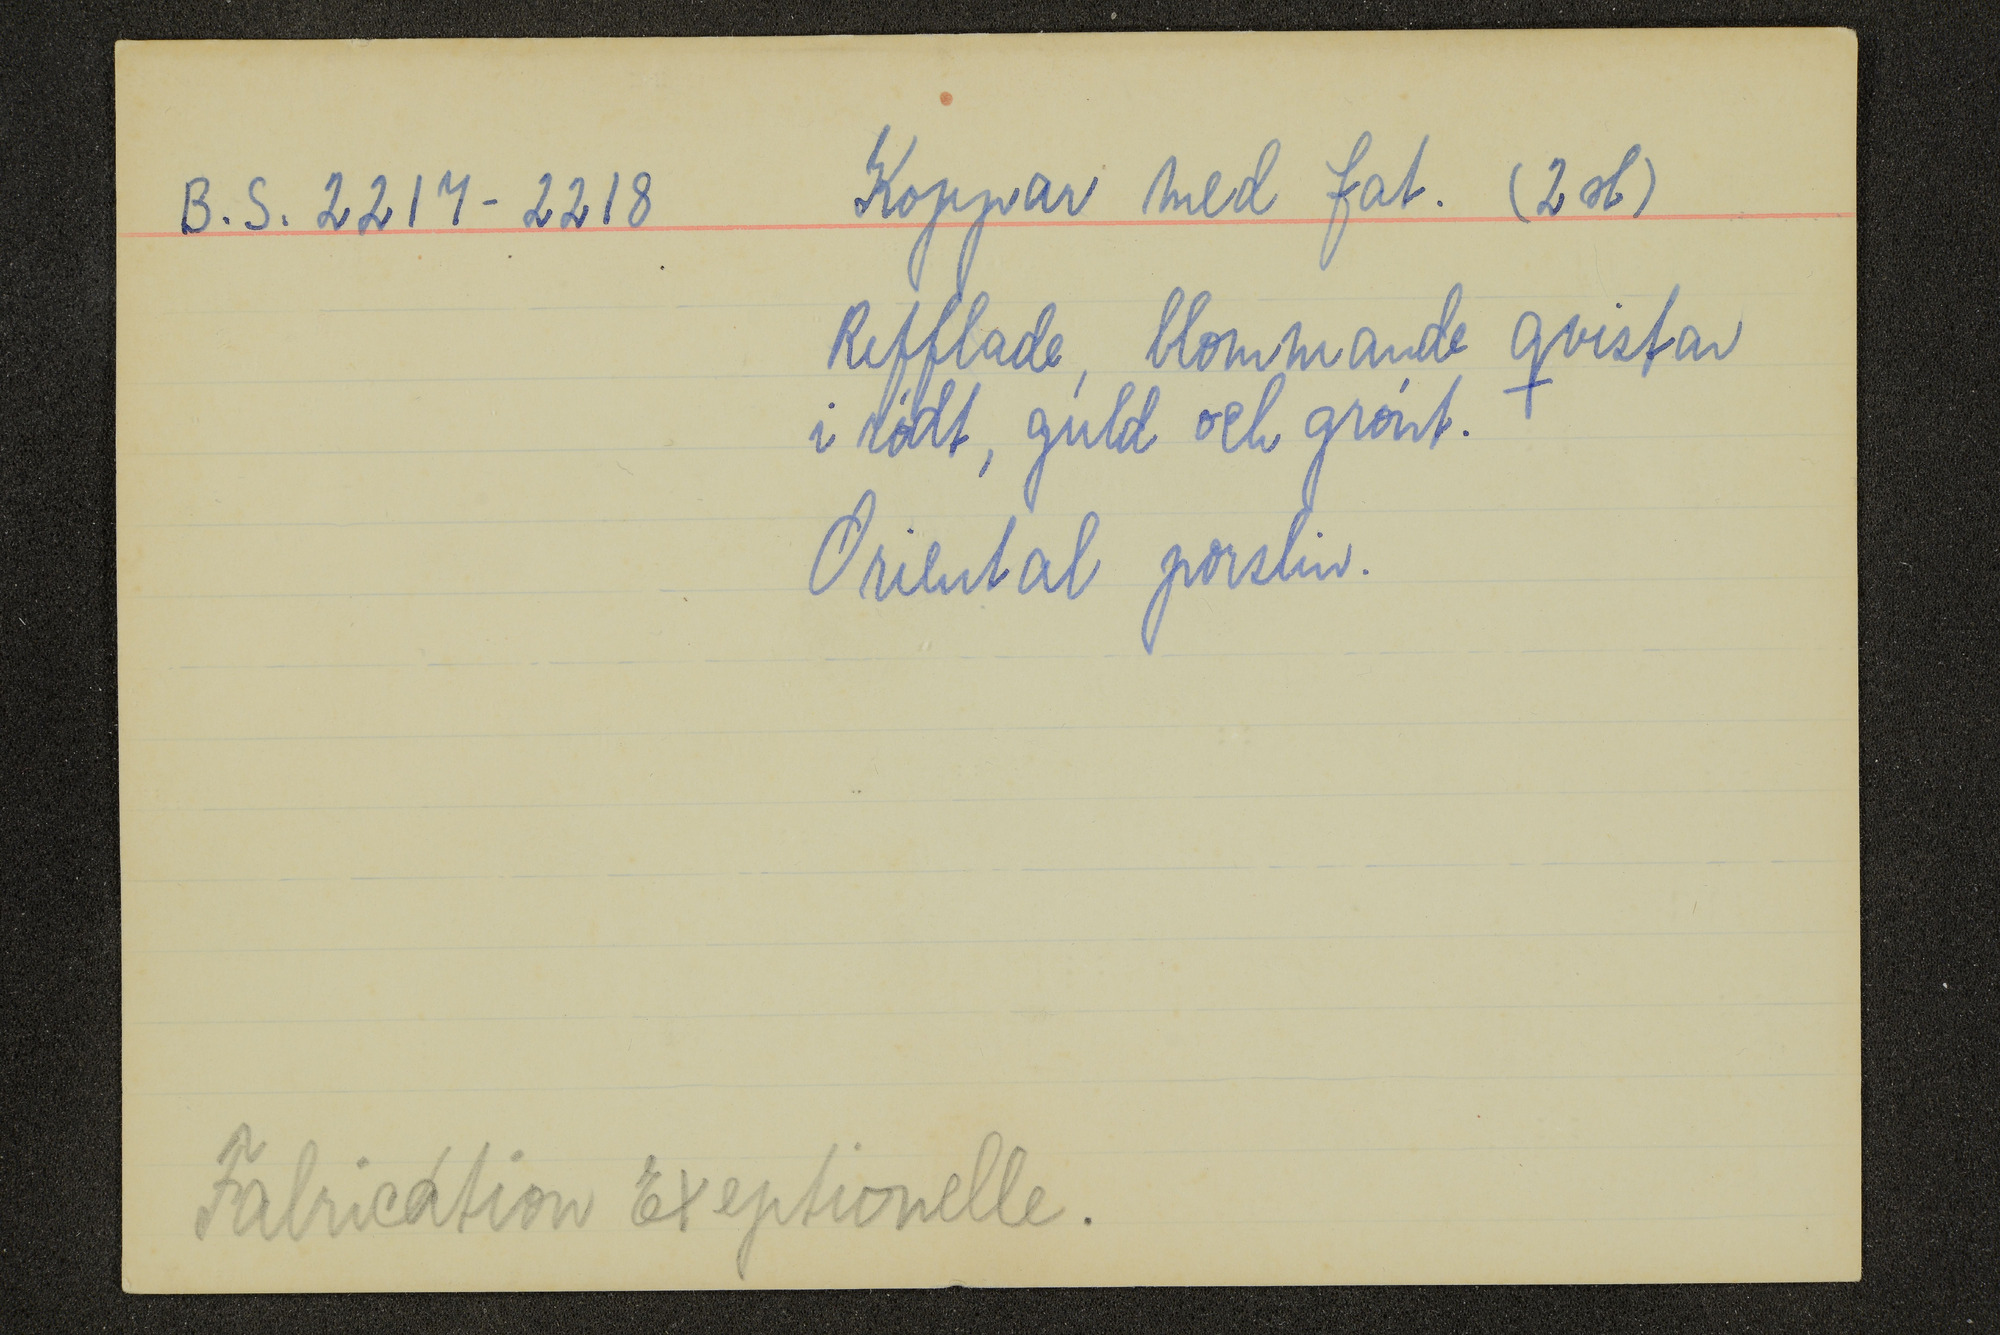 B.S. 2217-2218 Koppar med fat. (2 st)
Refflade, blommande qvistar
i rödt, guld och grönt.
Oriental porslin.
Fabrication Exeptionelle.